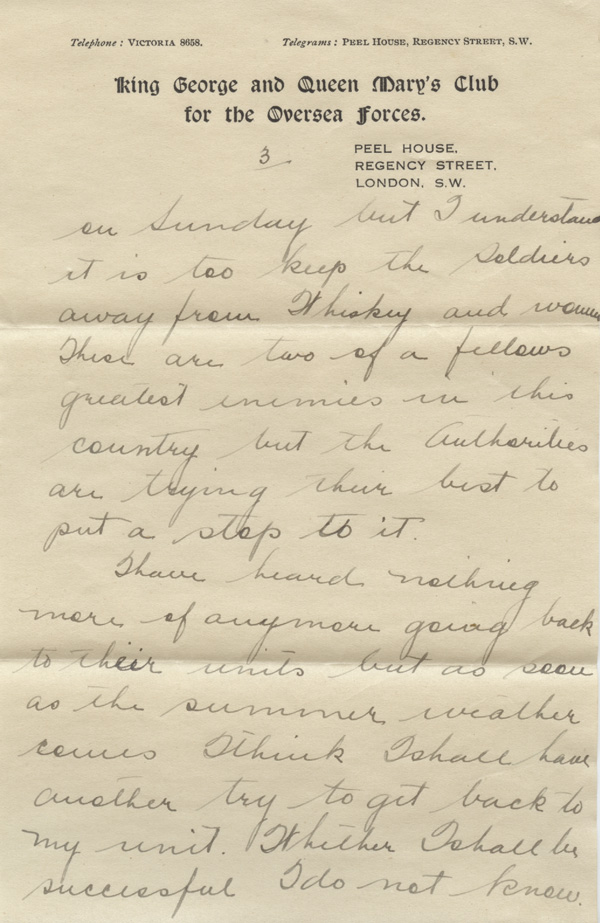 Telephone: VICTORIA 8658. Telegrams: PEEL HOUSE, REGENCY STREET, S.W.
King George and Queen Mary's Club
for the Oversea Forces.
3
PEEL HOUSE,
REGENCY STREET,
LONDON, S.W.
on Sunday but I understand
it is too keep the Soldiers
away from Whiskey and women
These are two of a fellows
greatest enimies in this
country but the Authorities
are trying their best to
put a stop to it.
I have heard nothing
more of anymore going back
to their units but as soon
as the summer weather
comes I think I shall have
another try to get back to
my unit. Whither I shall be
successful I do not know.